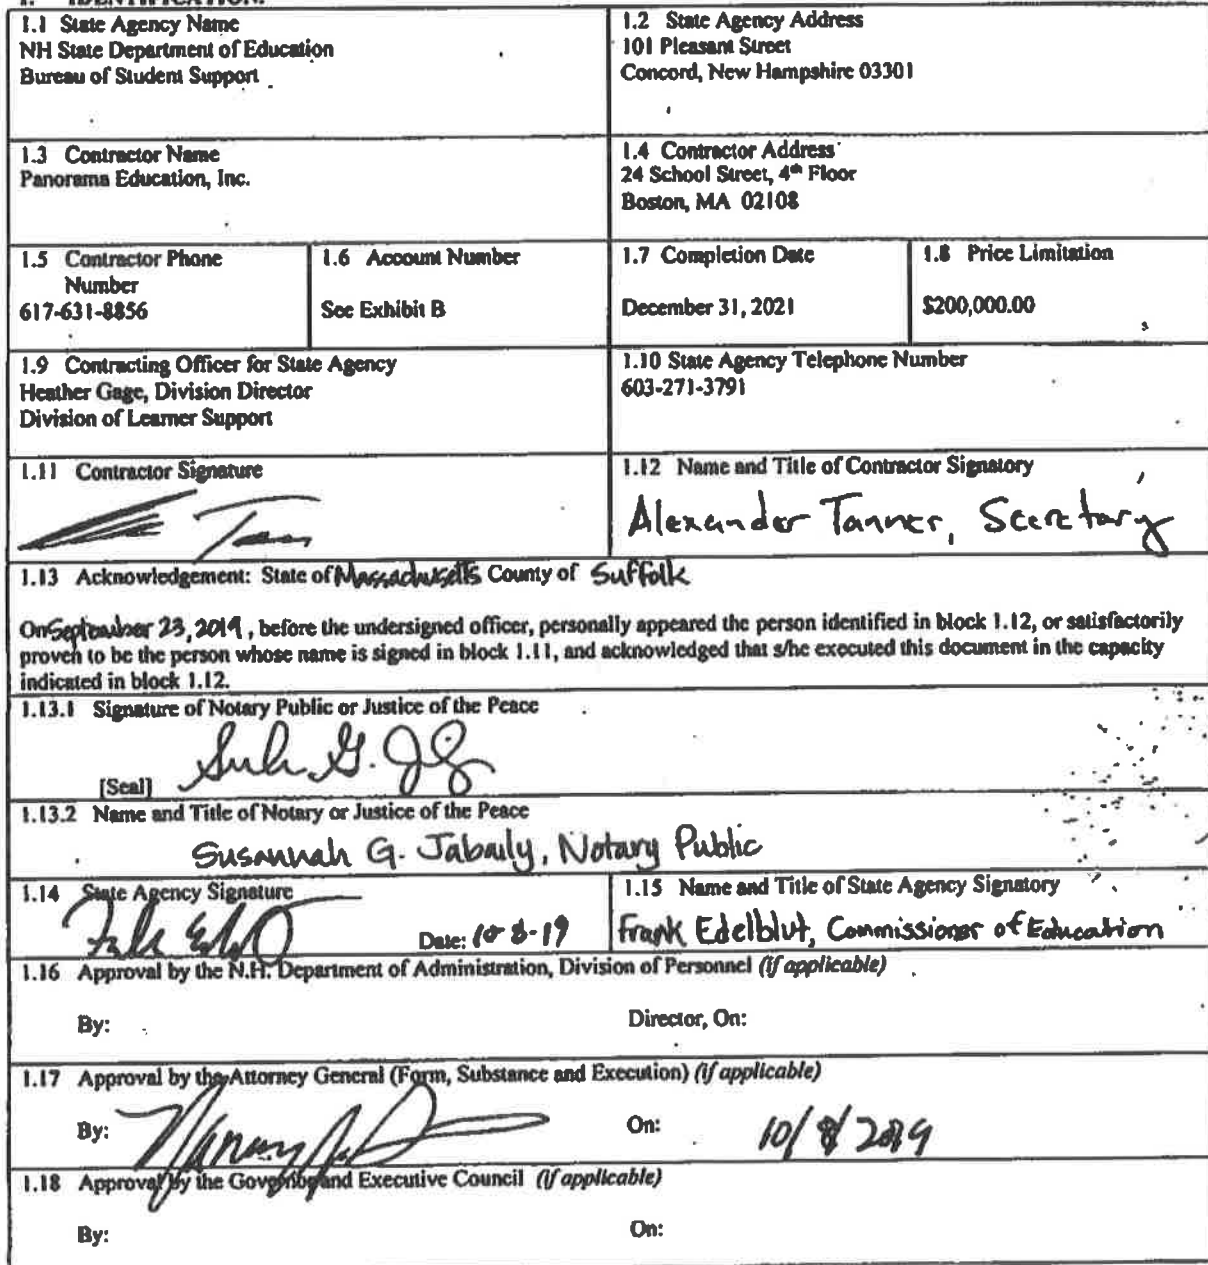 1. IDENTIFICATION.
1.1 State Agency Name
NH State Department of Education
Bureau of Student Support
1.2 State Agency Address
101 Pleasant Street
Concord, New Hampshire 03301
1.3 Contractor Name
Panorama Education, Inc.
1.4 Contractor Address
24 School Street, 4th Floor
Boston, MA 02108
1.5 Contractor Phone
Number
617-631-8856
1.6 Account Number
See Exhibit B
1.7 Completion Date
December 31, 2021
1.8 Price Limitation
$200,000.00
1.9 Contracting Officer for State Agency
Heather Gage, Division Director
Division of Learner Support
1.10 State Agency Telephone Number
603-271-3791
1.11 Contractor Signature
1.12 Name and Title of Contractor Signatory
Alexander Tanner, Secretary
1.13 Acknowledgement: State of Massachusetts County of Suffolk
On September 23, 2019, before the undersigned officer, personally appeared the person identified in block 1.12, or satisfactorily
proven to be the person whose name is signed in block 1.11, and acknowledged that s/he executed this document in the capacity
indicated in block 1.12.
1.13.1 Signature of Notary Public or Justice of the Peace
[Seal]
1.13.2 Name and Title of Notary or Justice of the Peace
Susannah G. Jabaily, Notary Public
1.14 State Agency Signature
Date: 10-8-19
1.15 Name and Title of State Agency Signatory
Frank Edelblut, Commissioner of Education
1.16 Approval by the N.H. Department of Administration, Division of Personnel (if applicable)
By:
Director, On:
1.17 Approval by the Attorney General (Form, Substance and Execution) (if applicable)
By:
On: 10/8/2019
1.18 Approval by the Governor and Executive Council (if applicable)
By:
On: